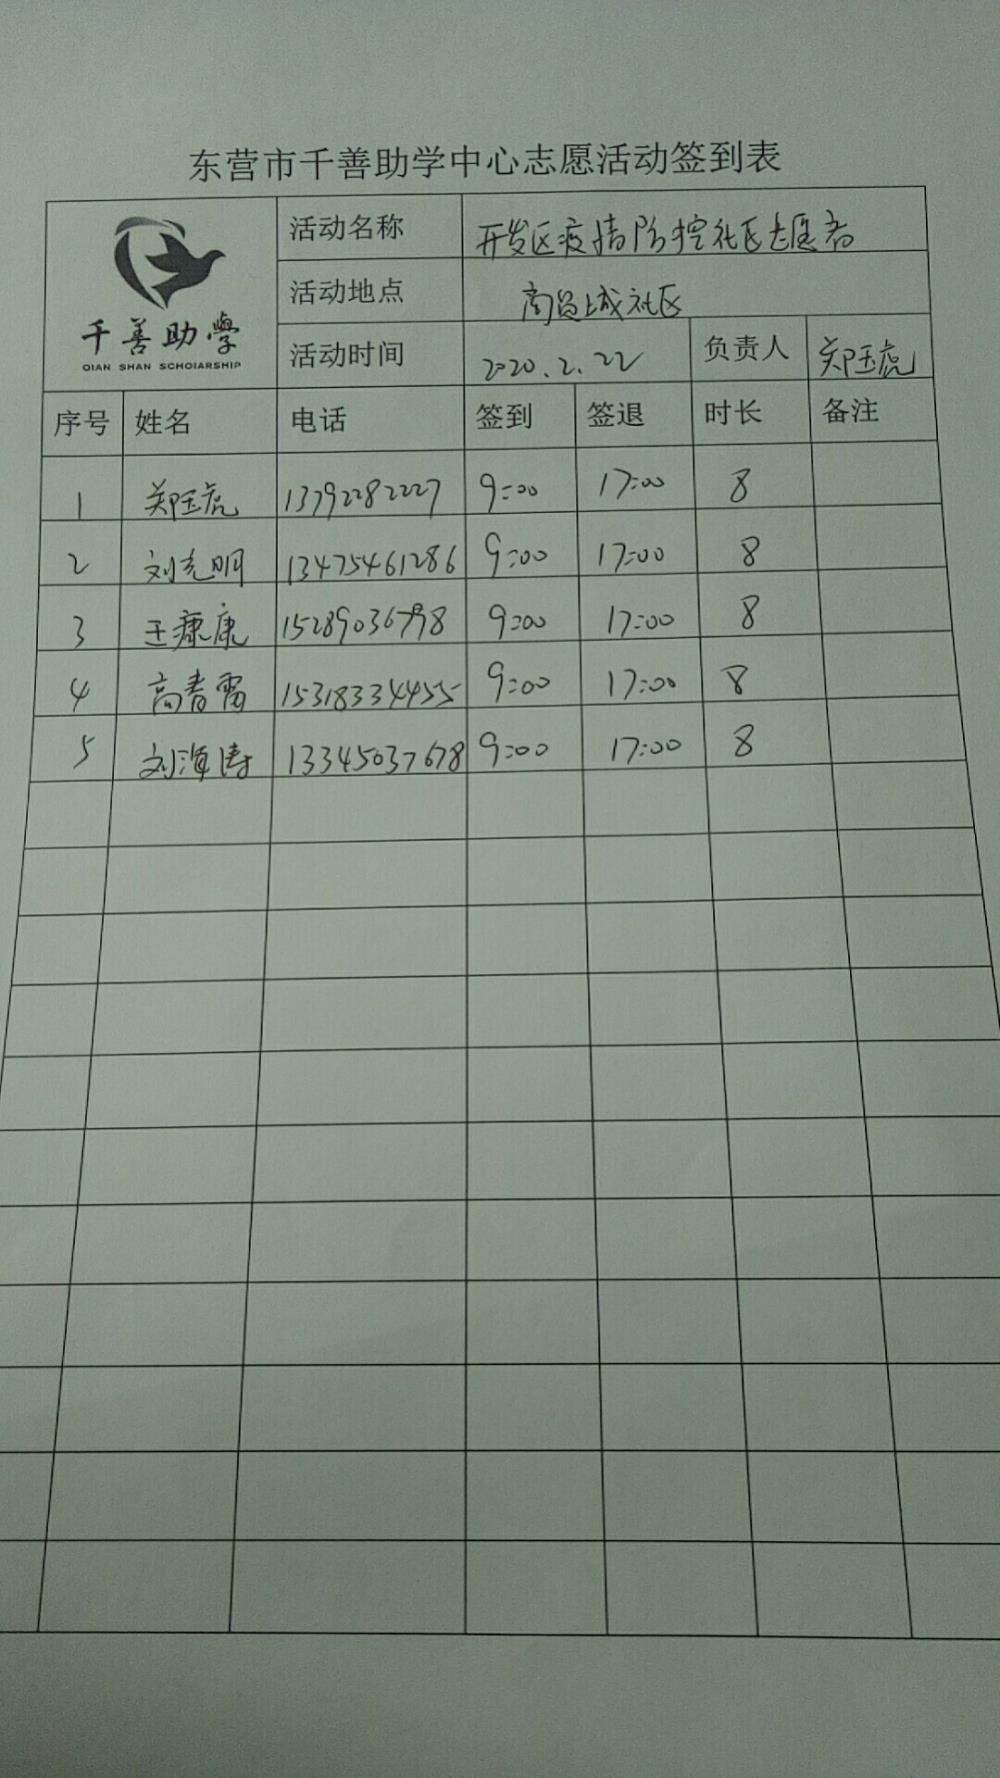 东营市千善助学中心志愿活动签到表
千善助學
QIAN SHAN SCHOIARSHIP
活动名称 开发区疫情防控社区志愿者
活动地点 商贸城社区
活动时间 2020.2.22 负责人 郑玉虎
序号 姓名 电话 签到 签退 时长 备注
1 郑玉虎 13792282227 9:00 17:00 8
2 刘克明 13475461286 9:00 17:00 8
3 王康康 15289036798 9:00 17:00 8
4 高春雷 15318334455 9:00 17:00 8
5 刘海涛 13345037678 9:00 17:00 8